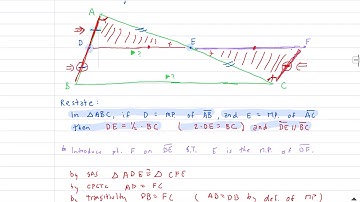 A
D
E
F
B
C
Restate:
In △ABC, if D = MP. of AB, and E = MP. of AC
then DE = ½·BC ( 2·DE = BC ) and DE ∥ BC
Introduce pt. F on DE S.T. E is the MP. of DF.
by SAS △ADE ≅ △CFE
by CPCTC AD = FC
by transitivity DB = FC ( AD = DB by def. of MP )